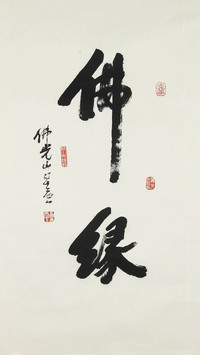 佛緣
佛光山星雲